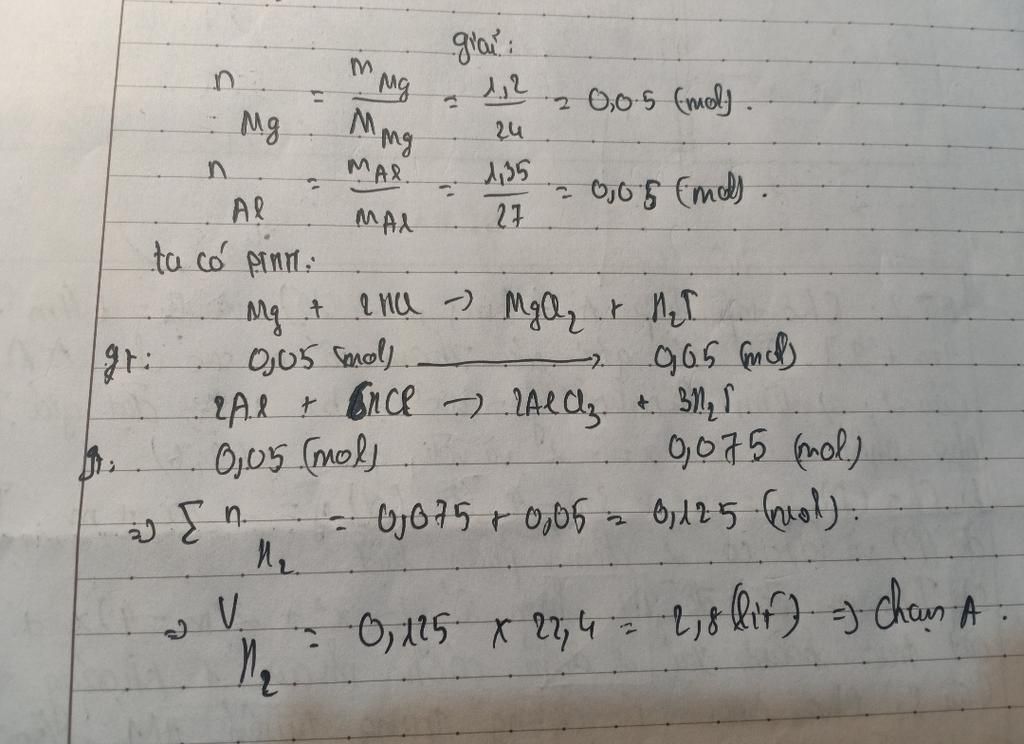 giải:
n Mg = m Mg / M Mg = 1,2 / 24 = 0,05 (mol).
n Al = m Al / M Al = 1,35 / 27 = 0,05 (mol).
ta có PTHH:
Mg + 2HCl → MgCl₂ + H₂↑
gt: 0,05 (mol) → 0,05 (mol)
2Al + 6HCl → 2AlCl₃ + 3H₂↑
gt: 0,05 (mol) 0,075 (mol)
=> Σ n H₂ = 0,075 + 0,05 = 0,125 (mol).
=> V H₂ = 0,125 x 22,4 = 2,8 (lít) => Chọn A.